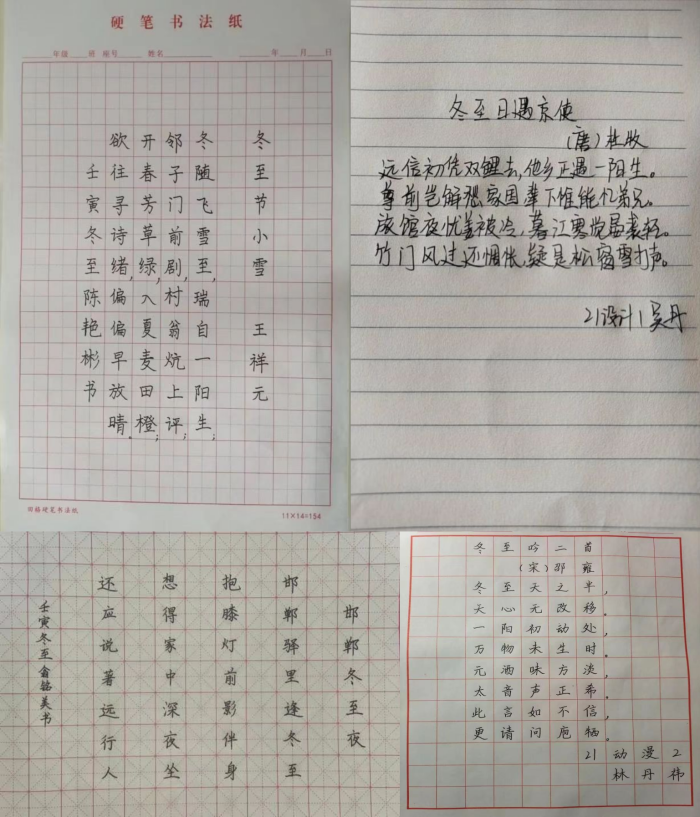 硬笔书法纸
年级 班 座号 姓名 年 月 日
冬至节小雪 王祥元
冬随飞雪至,瑞自一阳生;
邻子门前剧,村翁炕上评;
开春芳草绿,入夏麦田橙;
欲往寻诗绪,偏偏早放晴。
壬寅冬至陈艳彬书
田格硬笔书法纸
11×14=154
冬至日遇京使
(唐)杜牧
远信初凭双鲤去,他乡正遇一阳生。
尊前岂解愁家国 辇下惟能忆弟兄。
旅馆夜忧姜被冷,暮江寒觉晏裘轻。
竹门风过还惆怅,疑是松窗雪打声。
21设计1吴丹
邯郸冬至夜
邯郸驿里逢冬至
抱膝灯前影伴身
想得家中深夜坐
还应说著远行人
壬寅冬至俞铭美书
冬至吟二首
(宋)邵雍
冬至天之半,
天心无改移。
一阳初动处,
万物未生时。
元酒味方淡,
太音声正希。
此言如不信,
更请问庖牺。
21动漫2
林丹